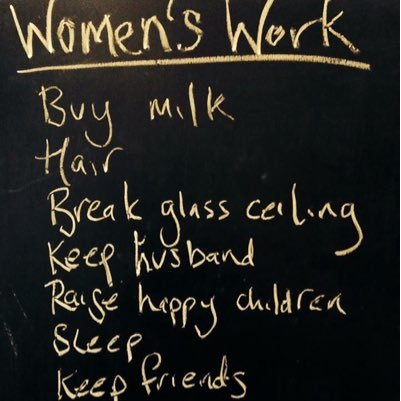 Women's Work
Buy milk
Hair
Break glass ceiling
Keep husband
Raise happy children
Sleep
Keep friends